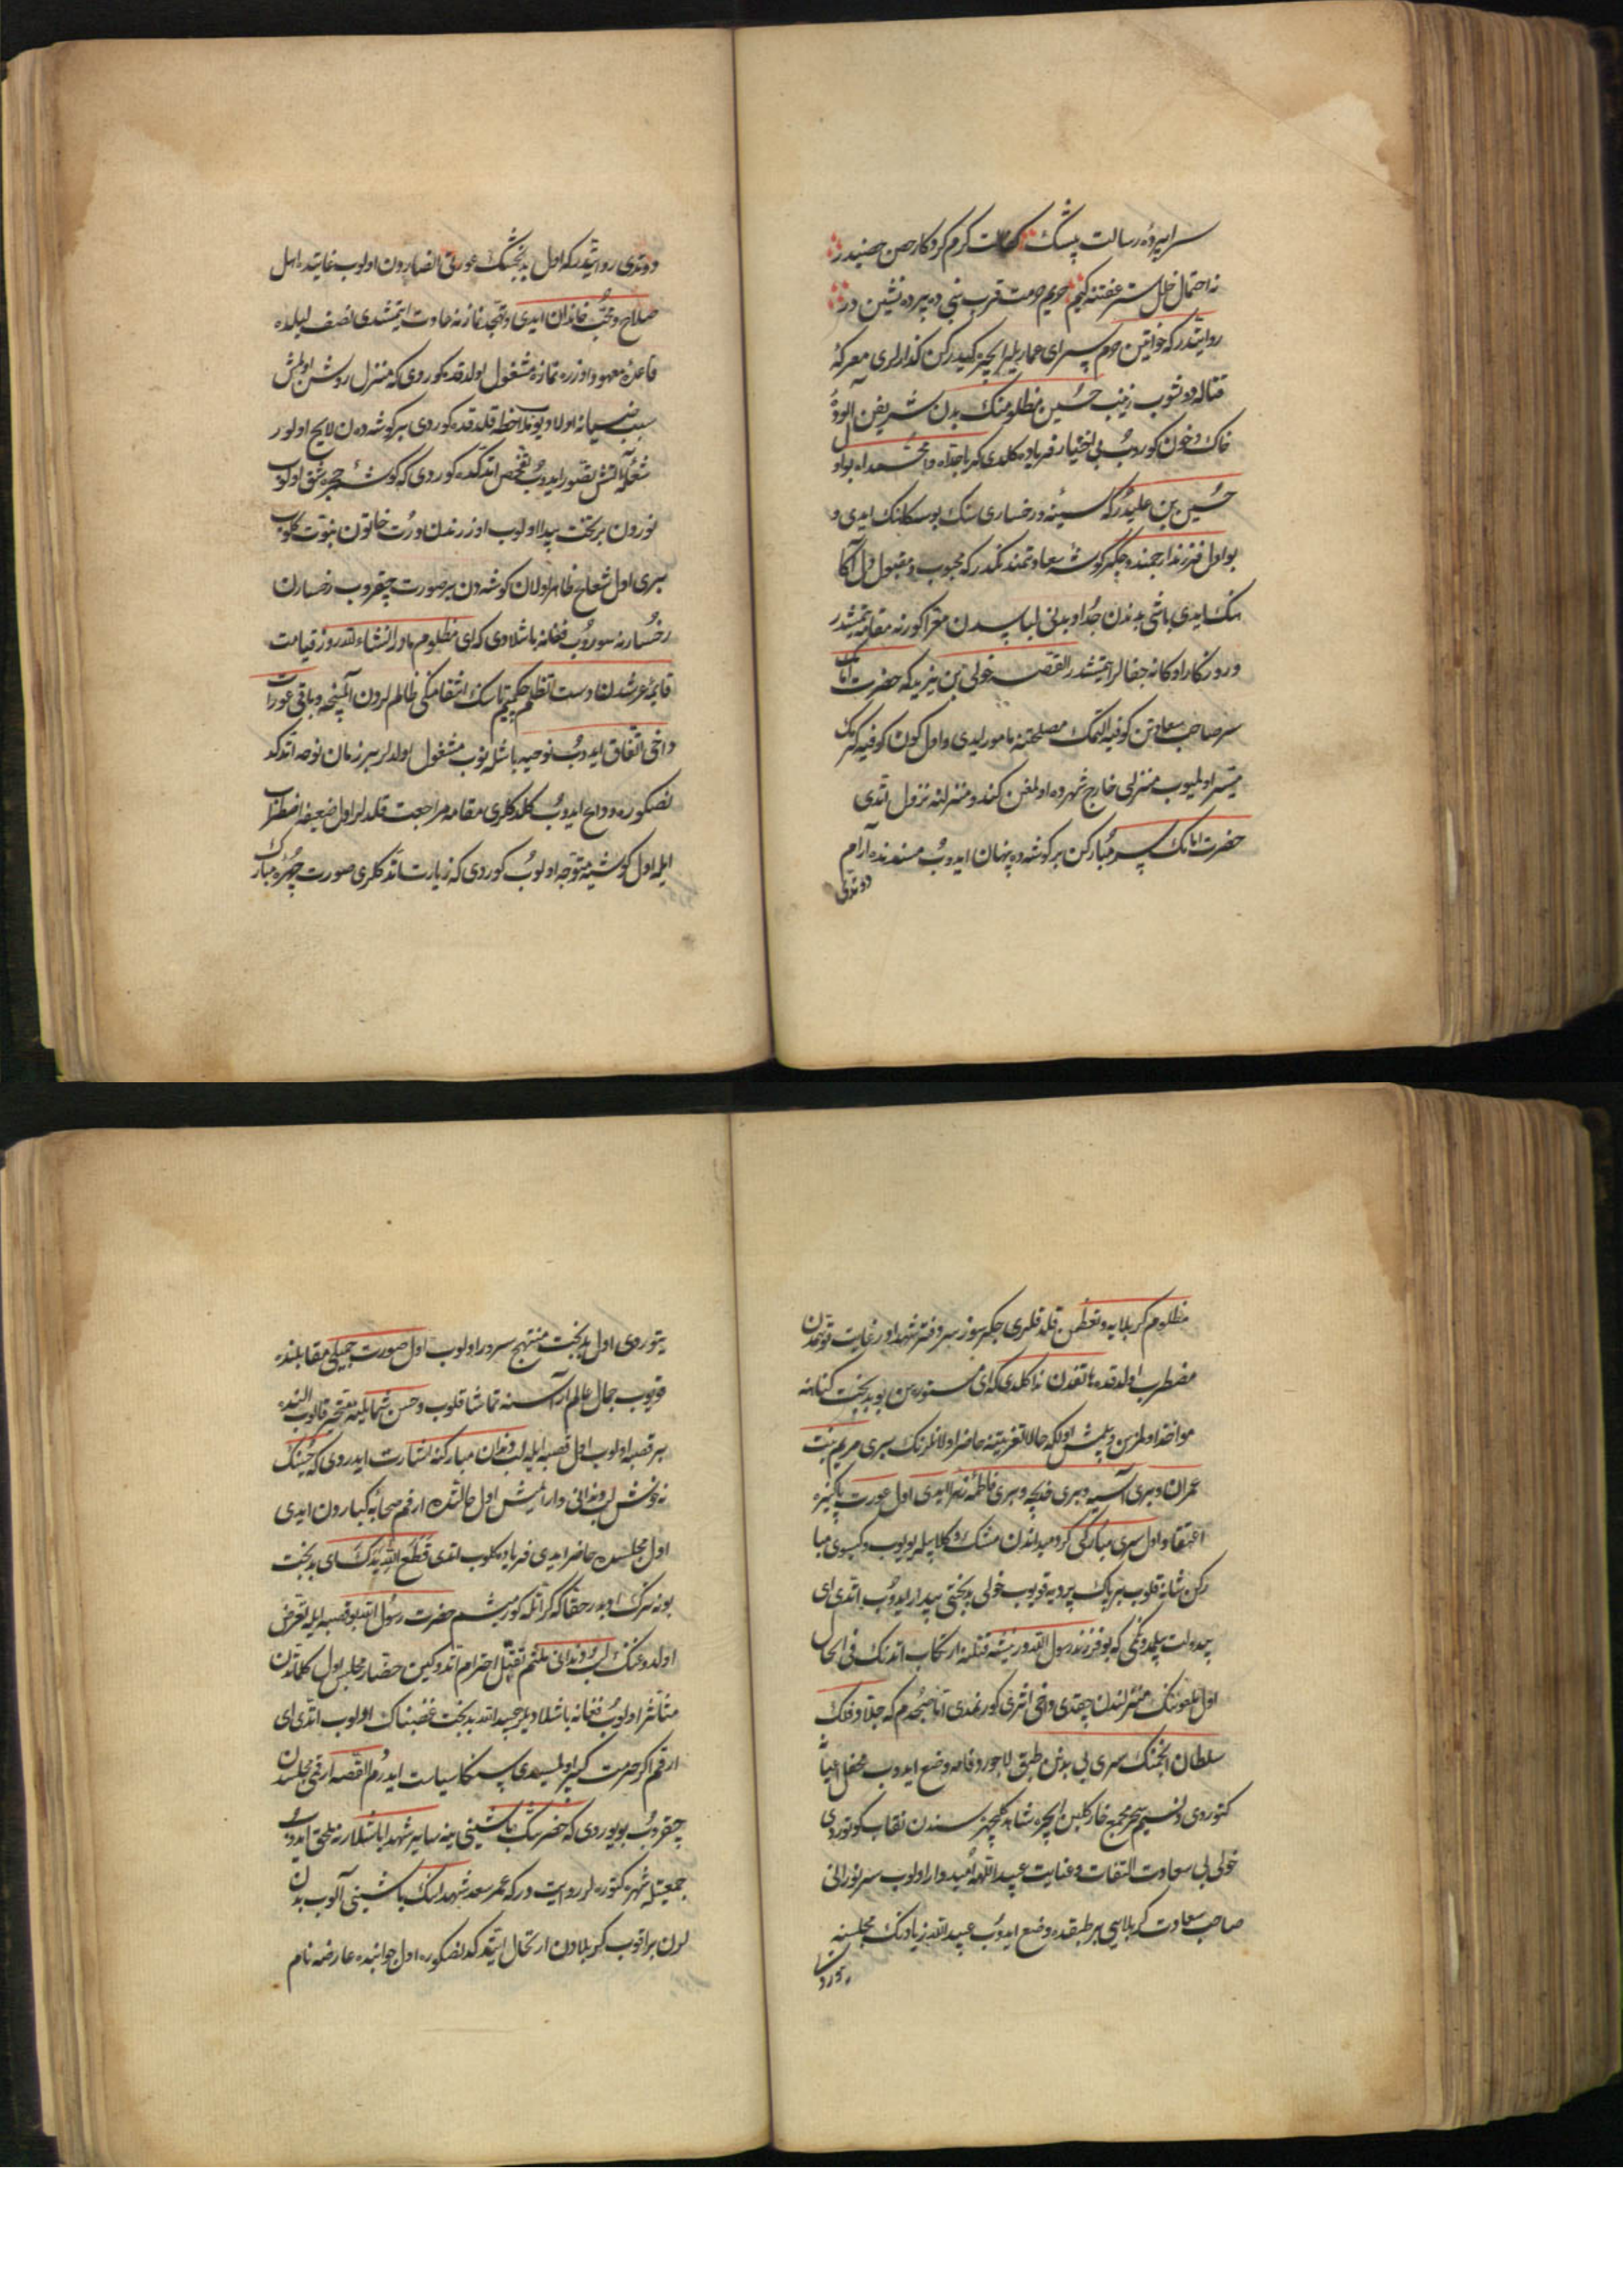 سراپرده رسالت پیشک کرم کردکار حصن حصیندر
نه احتمال خلل ستر عفتنه کیم حریم حرمت قرب نبی ده پرده نشین در
روایتدر که خواتین حرم سرای عماریلر ایچره کیدرکن کذارلری معرکۀ
قتاله دوشوب زینب حسین مظلومنک بدن شریفن آلودۀ
خاک و خون کوروب بی اختیار فریاده کلدی که یا جداه وا محمداه بو اول
حسین بن علیدر که سینه و رخساری سنک بوسه کاهنک ایدی و
بو اول فرزند ارجمند و جگر کوشۀ سعادتمندکدر که محبوب و مقبول
ایدی باشی بدندن جدا و بدنی لباسدن معرا کور نه مقامه یتمشدر
و روزکار اوکا نه جفالر ایتمشدر القصه خولی بن یزید که حضرت امامنک
سر صاحب سعادتن کوفیه ایلتمک مصلحتنه مامور ایدی و اول کون کوفیه کرمک
میسر اولمیوب منزلی خارج شهرده اولمغن کندو منزلنه نزول اتدی
حضرت امامنک سر مبارکن بر کوشه ده پنهان ایدوب مسندنده آرام
دوتدی
دوتدی روایتدر که اول بدبختنک عورتی انصاردن اولوب غایتده اهل
صلاح و محب خاندان ایدی و تهجد نمازنه عادت ایتمشدی نصف لیلده
قاعدۀ معهود اوزره نمازه مشغول اولدقده کوردی که منزل روشن اولمش
سبب ضیا نه اولا دیوب ملاحظه قلدقده کوردی بر کوشه دن لایح اولور
شعلۀ آتش تصور ایدوب تفحص اتدکده کوردی که کوشۀ حجره شق اولوب
نوردن بر تخت پیدا اولوب اوزرندن دورت خاتون نبوت کلوب
بری اول شعاع ظاهر اولان کوشه دن بر صورت چقروب رخسارن
رخسارنه سوروب فغانه باشلادی که ای مظلوم مادر انشاءالله روز قیامت
قایمۀ عرشدن دست تظلم چکمیم تا سنک انتقامنکی ظالملردن آلمینجه و باقی عورات
داخی اتفاق ایدوب نوحیه باشلیوب مشغول اولدلر بر زمان نوحه اتدکد
نصکوره وداع ایدوب کلدکلری مقامه مراجعت قلدلر اول ضعیفه اضطراب
ایله اول کوشیه متوجه اولوب کوردی که زیارت اتدکلری صورت چهرۀ مبارک
مظلوم کربلایه و تعظیمن قلدقلری جگرسوز سر دفتر شهدا در غایت قورقودن
مضطرب اولدقده هاتفدن ندا کلدی که ای مستوره سن بو بدبخت کناهنه
مواخذ اولمزسن و بلمش اول که حالا تعزیتنه حاضر اولانلرنک بری مریم بنت
عمران و بری آسیه و بری خدیجه و بری فاطمۀ زهرا ایدی اول عورت پاکیزه
اعتقاد اول سری مبارکی کرد میداندن مشک و کلابیله یویوب و کیسوی مبا
رکن شانه قلوب بر پاک پرده یه قویوب خولی بدبختی بیدار ایدوب اتدی ای
بیدولت بلمدوکمی که بو فرزند رسول اللهدر نیشه قتلنه ارتکاب اتدنک فی الحال
اول ملعوننک منزلندن چقدی داخی اثری کورنمدی اما صبحدم که جلاد فلک
سلطان انجمنک سری بی بدنن طبق لاجورد فامه وضع ایدوب محفل اعیانه
کتوردی و نسیم سحر مجمع خار کلبن ایچره شاهد کلچهره سندن نقاب کوتوردی
خولی بی سعادت التفات و عنایت عبیداللهه امیدوار اولوب سر نورانی
صاحب سعادت کربلایی بر طبقده وضع ایدوب عبیدالله زیادنک مجلسنه
یتوردی
یتوردی اول بدبخت مبتهج سرور اولوب اول صورت جمیلی مقابلنده
قویوب جمال عالم آراسنه تماشا قلوب و حسن شمایلنه متحیر قالوب النده
بر قصبه اولوب اول قصبه ایله لب دندان مبارکنه اشارت ایدردی که حسینک
نه خوش لب و دندانی وار ایمش اول حالتده ارقم صحابۀ کباردن ایدی
اول مجلسده حاضر ایدی فریاده کلوب اتدی قطع الله یدک ای بدبخت
بو نه ترک ادبدر حقا که کراتله کورمشم حضرت رسول الله بو قصبه ایله تعرض
اولدوغنک لب و دندانی ملثم تقبیل احترام اتدوکین حضار مجلس بو کلماتدن
متأثر اولوب فغانه باشلادیلر عبیدالله بدبخت غضبناک اولوب اتدی ای
ارقم اکر حرمت کبر اولمسیدی سکا سیاست ایدردم القصه ارقمی مجلسدن
چقروب بویوردی که حضرتنک باشینی ینه سایر شهدا باشلارنه ملحق ایدوب
جمعیتله شهره کتورەلر روایت در که عمر سعد شهدانک باشینی آلوب بدن
لرن براقوب کربلادن ارتحال ایتدکدنصکوره اول جوانبده عارضه نام